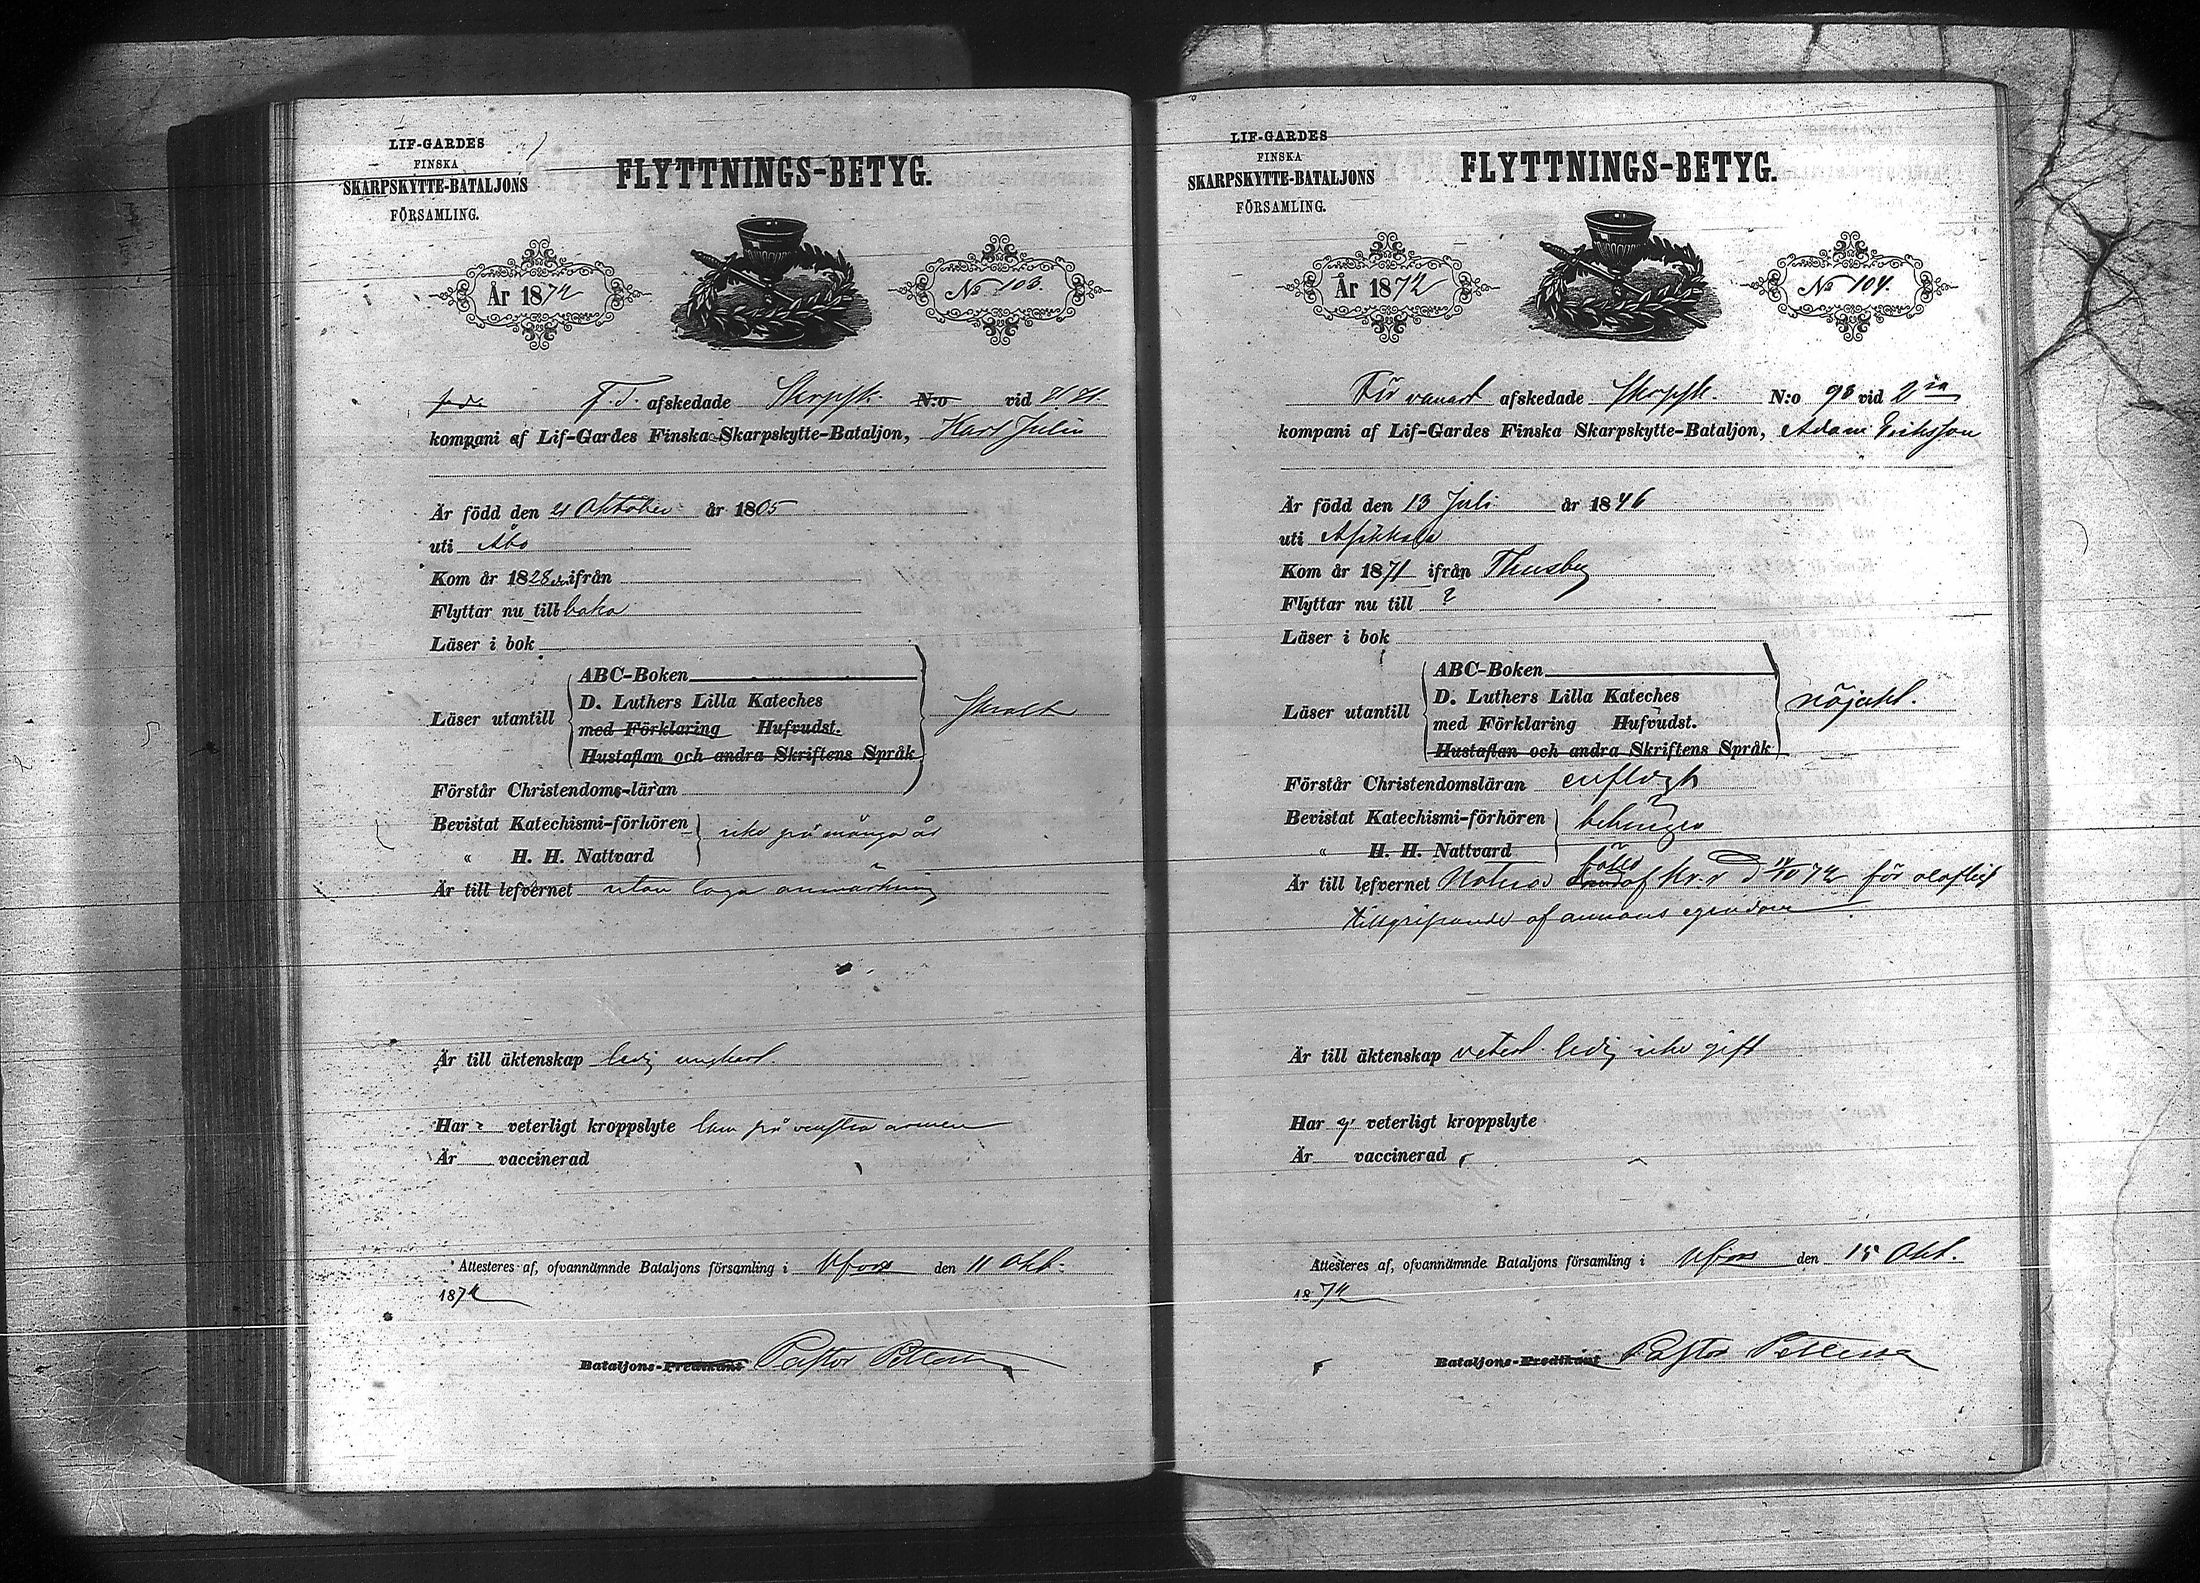 LIF-GARDES
FINSKA
SKARPSKYTTE-BATALJONS
FÖRSAMLING.
FLYTTNINGS-BETYG.
År 1872
No 103.
F. d. afskedade Skrpsk. N:o vid
kompani af Lif-Gardes Finska Skarpskytte-Bataljon, Karl Julin
Är född den 21 Oktober år 1805
uti Åbo
Kom år 1828 ifrån
Flyttar nu tillbaka
Läser i bok
Läser utantill
ABC-Boken
D. Luthers Lilla Kateches
med Förklaring Hufvudst.
Hustaflan och andra Skriftens Språk
Svagt
Förstår Christendoms-läran
Bevistat Katechismi-förhören
icke på många år
" H. H. Nattvard
Är till lefvernet utan laga anmärkning
Är till äktenskap ledig ungkarl.
Har veterligt kroppslyte lam på venstra armen
Är vaccinerad
Attesteres af, ofvannämnde Bataljons församling i Hfors den 11 Okt.
1872
Bataljons-Predikant Pastor
LIF-GARDES
FINSKA
SKARPSKYTTE-BATALJONS
FÖRSAMLING.
FLYTTNINGS-BETYG.
År 1872
No 104.
För vanart afskedade Skrpsk. N:o 98 vid 2
kompani af Lif-Gardes Finska Skarpskytte-Bataljon, Adam Eriksson
Är född den 13 Juli år 1846
uti Asikkala
Kom år 1871 ifrån Thusby
Flyttar nu till ?
Läser i bok
Läser utantill
ABC-Boken
D. Luthers Lilla Kateches
med Förklaring Hufvudst.
Hustaflan och andra Skriftens Språk
nöjakt.
Förstår Christendomsläran enfaldigt
Bevistat Katechismi-förhören
behörigen
" H. H. Nattvard
Är till lefvernet fälld af Kr.r d 14/10 72 för olofligt
tillgripande af annans egendom
Är till äktenskap veterl. ledig icke gift
Har ej veterligt kroppslyte
Är vaccinerad
Attesteres af, ofvannämnde Bataljons församling i Hfors den 15 Okt.
1872
Bataljons-Predikant Pastor